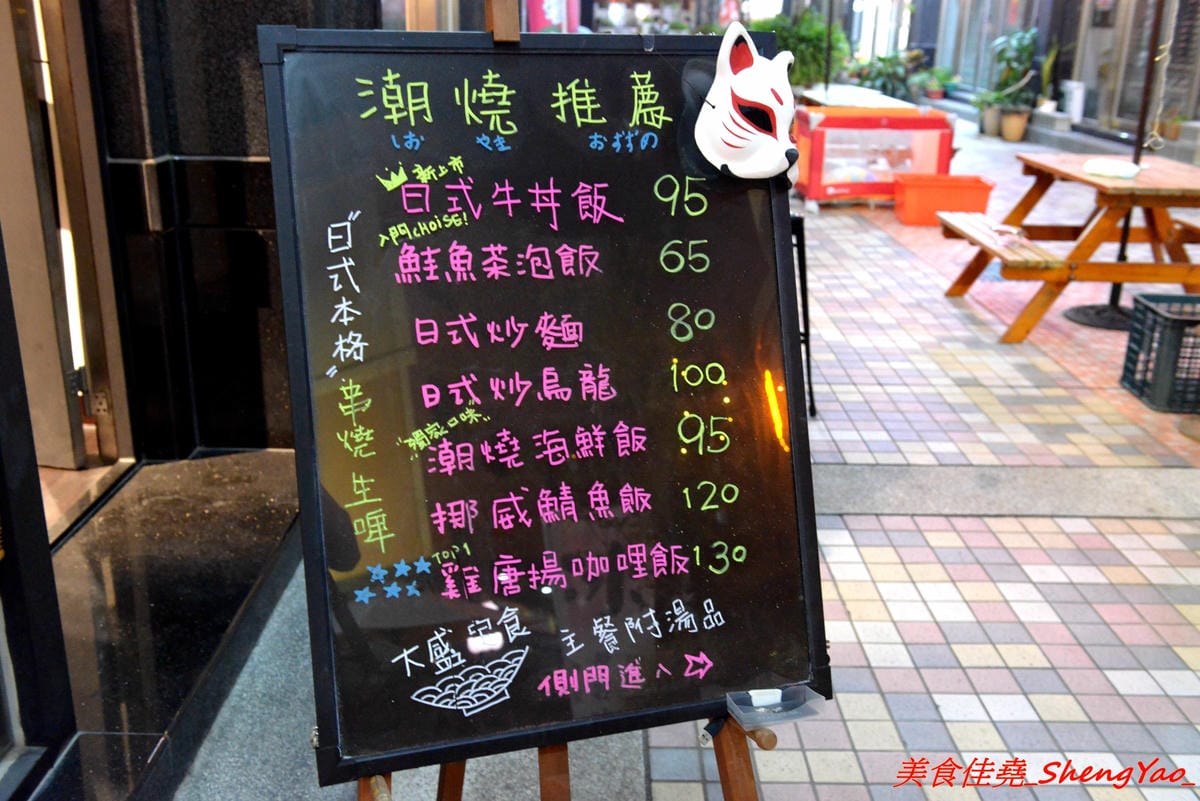 潮燒推薦
しお やき おすずめ
新上市
日式牛丼飯 95
入門CHOiSE!
鮭魚茶泡飯 65
日式炒麵 80
日式炒烏龍 100
"獨家口味"
潮燒海鮮飯 95
挪威鯖魚飯 120
TOP1
雞唐揚咖哩飯 130
"日式本格"
串燒生啤
大盛 食
主餐附湯品
側門進入
美食佳堯_ShengYao_